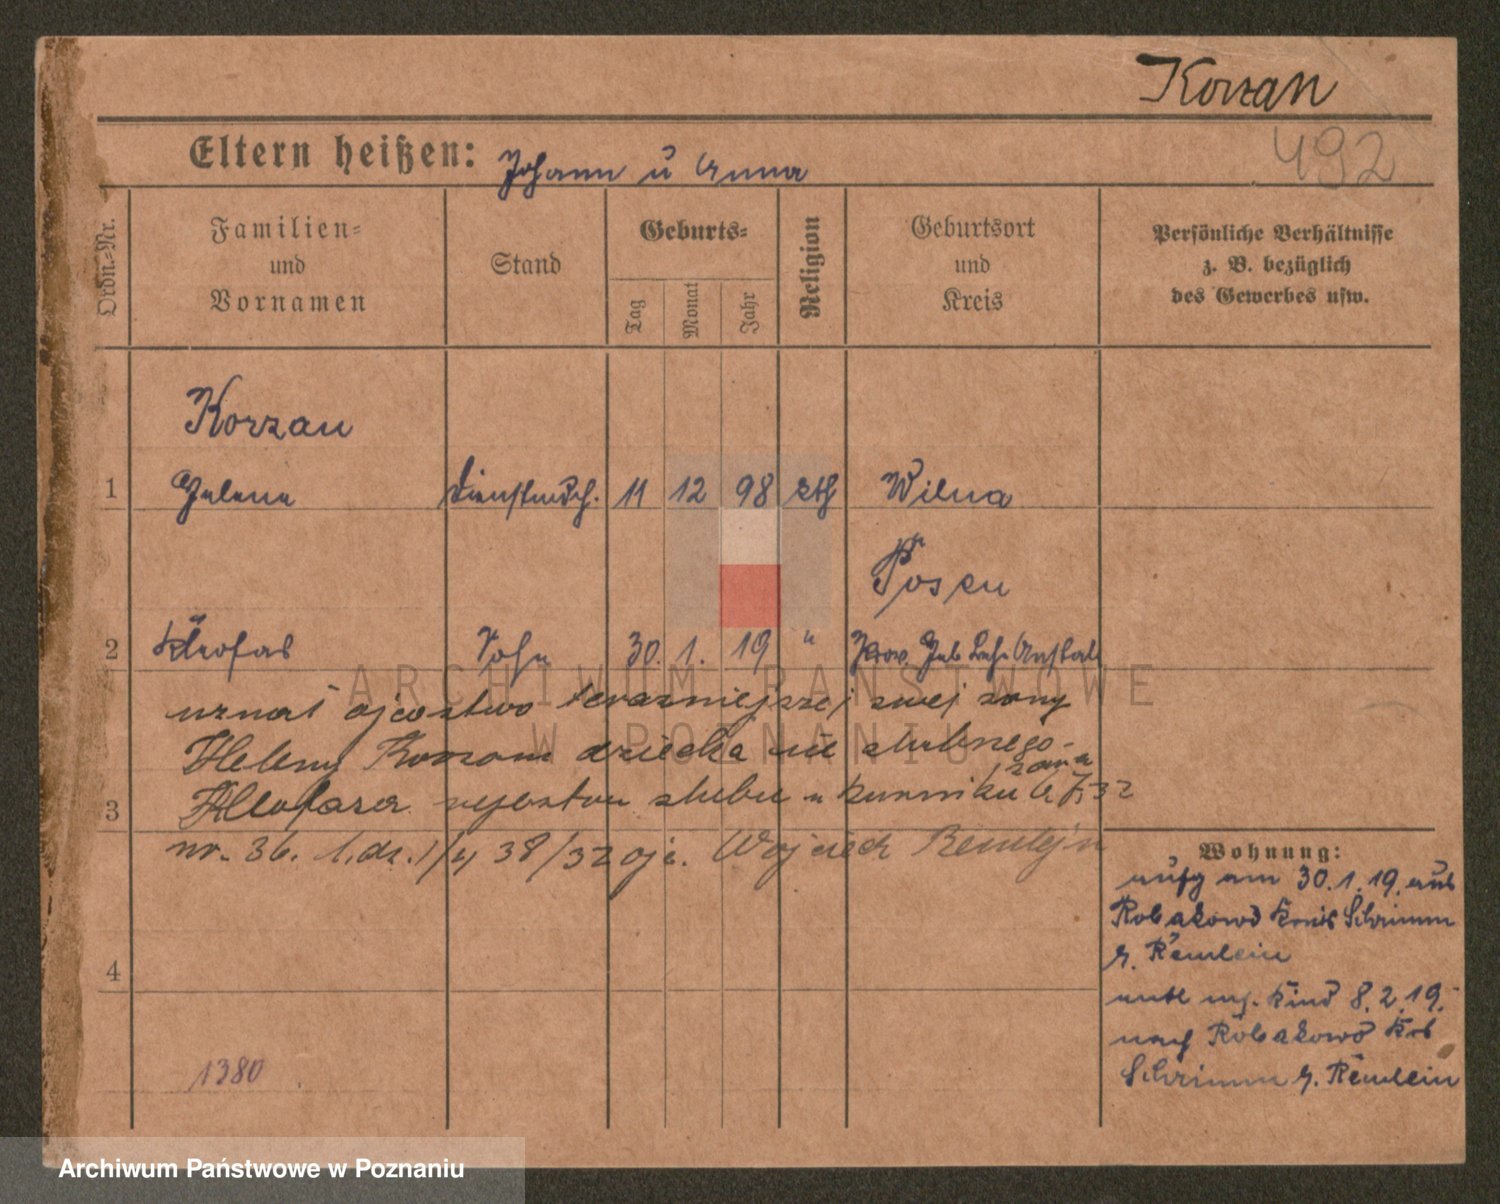 Korzan
492
Eltern heißen: Johann u Anna
Ordn.-Nr.
Familien-
und
Vornamen
Stand
Geburts-
Tag
Monat
Jahr
Religion
Geburtsort
und
Kreis
Persönliche Verhältnisse
z. B. bezüglich
des Gewerbes usw.
Korzan
1 Helene Dienstmdch. 11 12 98 kth Wilna
Posen
2 Kleofas Sohn 30. 1. 19 " Prov. Heb Lehr Anstalt
uznał ojcostwo terazniejszej swej żony
Heleny Korzan dziecka nie slubnego
3 Kleofasa rejestru slubu u Kurniku
nr. 36. 38/32 Wojciech Remlejn
Wohnung:
aufg am 30.1.19. aus
Robakowo Kreis Schrimm
b. Remlein
entl mj. Kind 8.2.19.
nach Robakowo Krs
Schrimm b. Remlein
4
1380
ARCHIWUM PAŃSTWOWE
W POZNANIU
Archiwum Państwowe w Poznaniu